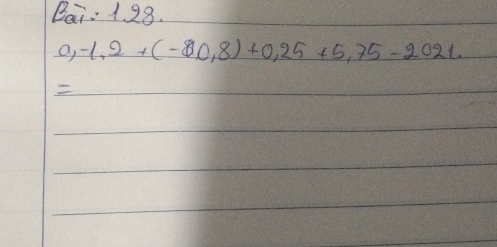 Bài: 1.28.
a, -1,2 + (-0,8) + 0,25 + 5,75 - 2021.
=